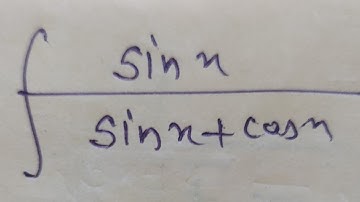 ∫ sin x
sin x + cos x